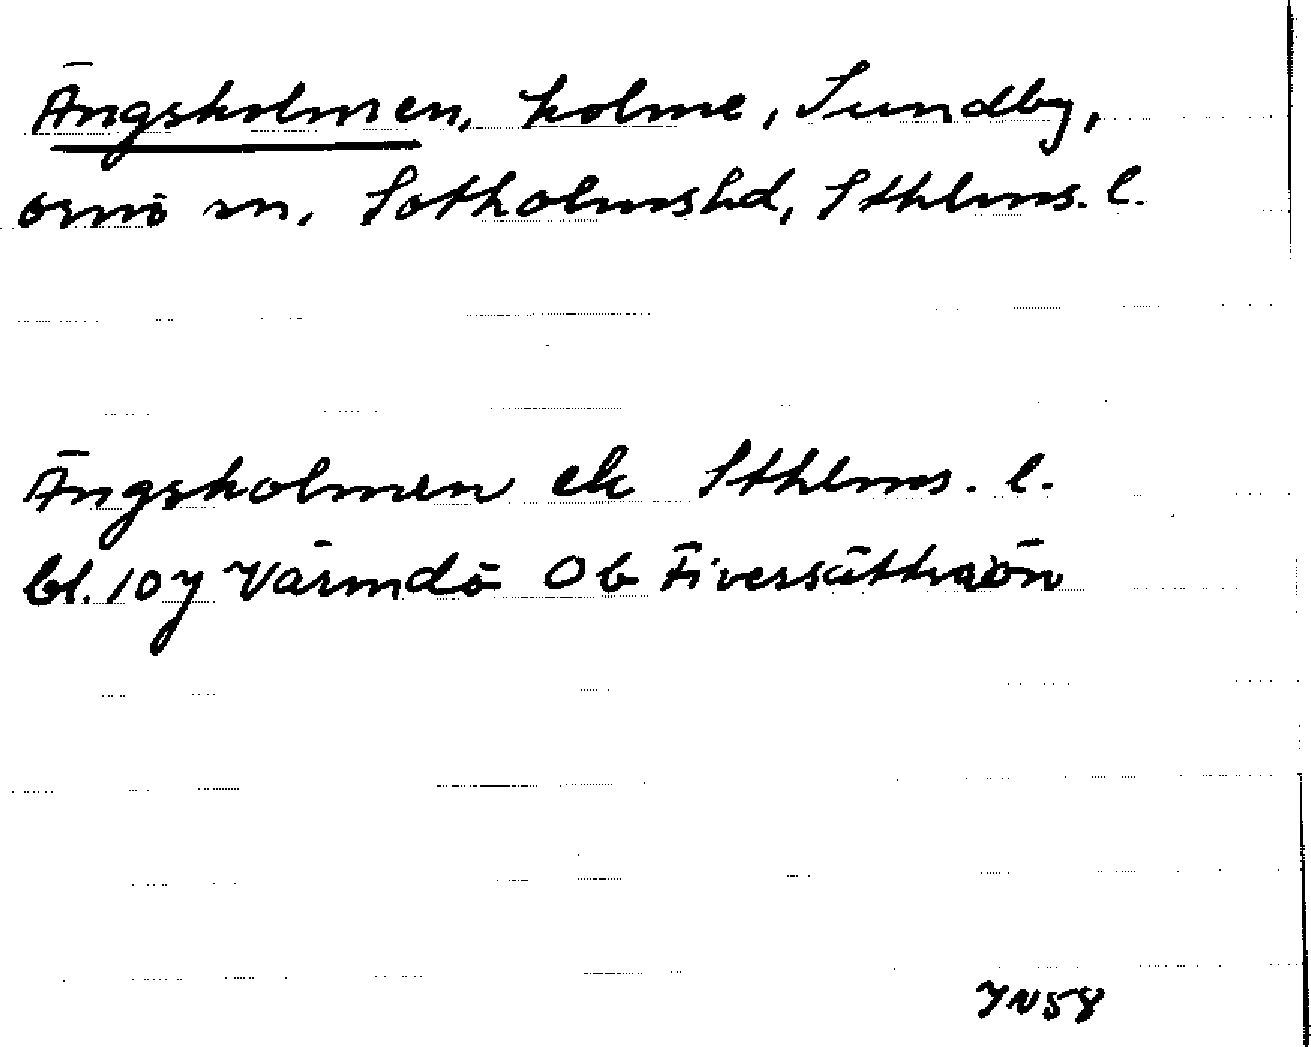 Ängsholmen, holme, Sundby,
Ornö sn, Sotholmshd, Sthlms. l.
Ängsholmen ek Sthlms. l.
bl. 107 Värmdö Ob Fiversätraön